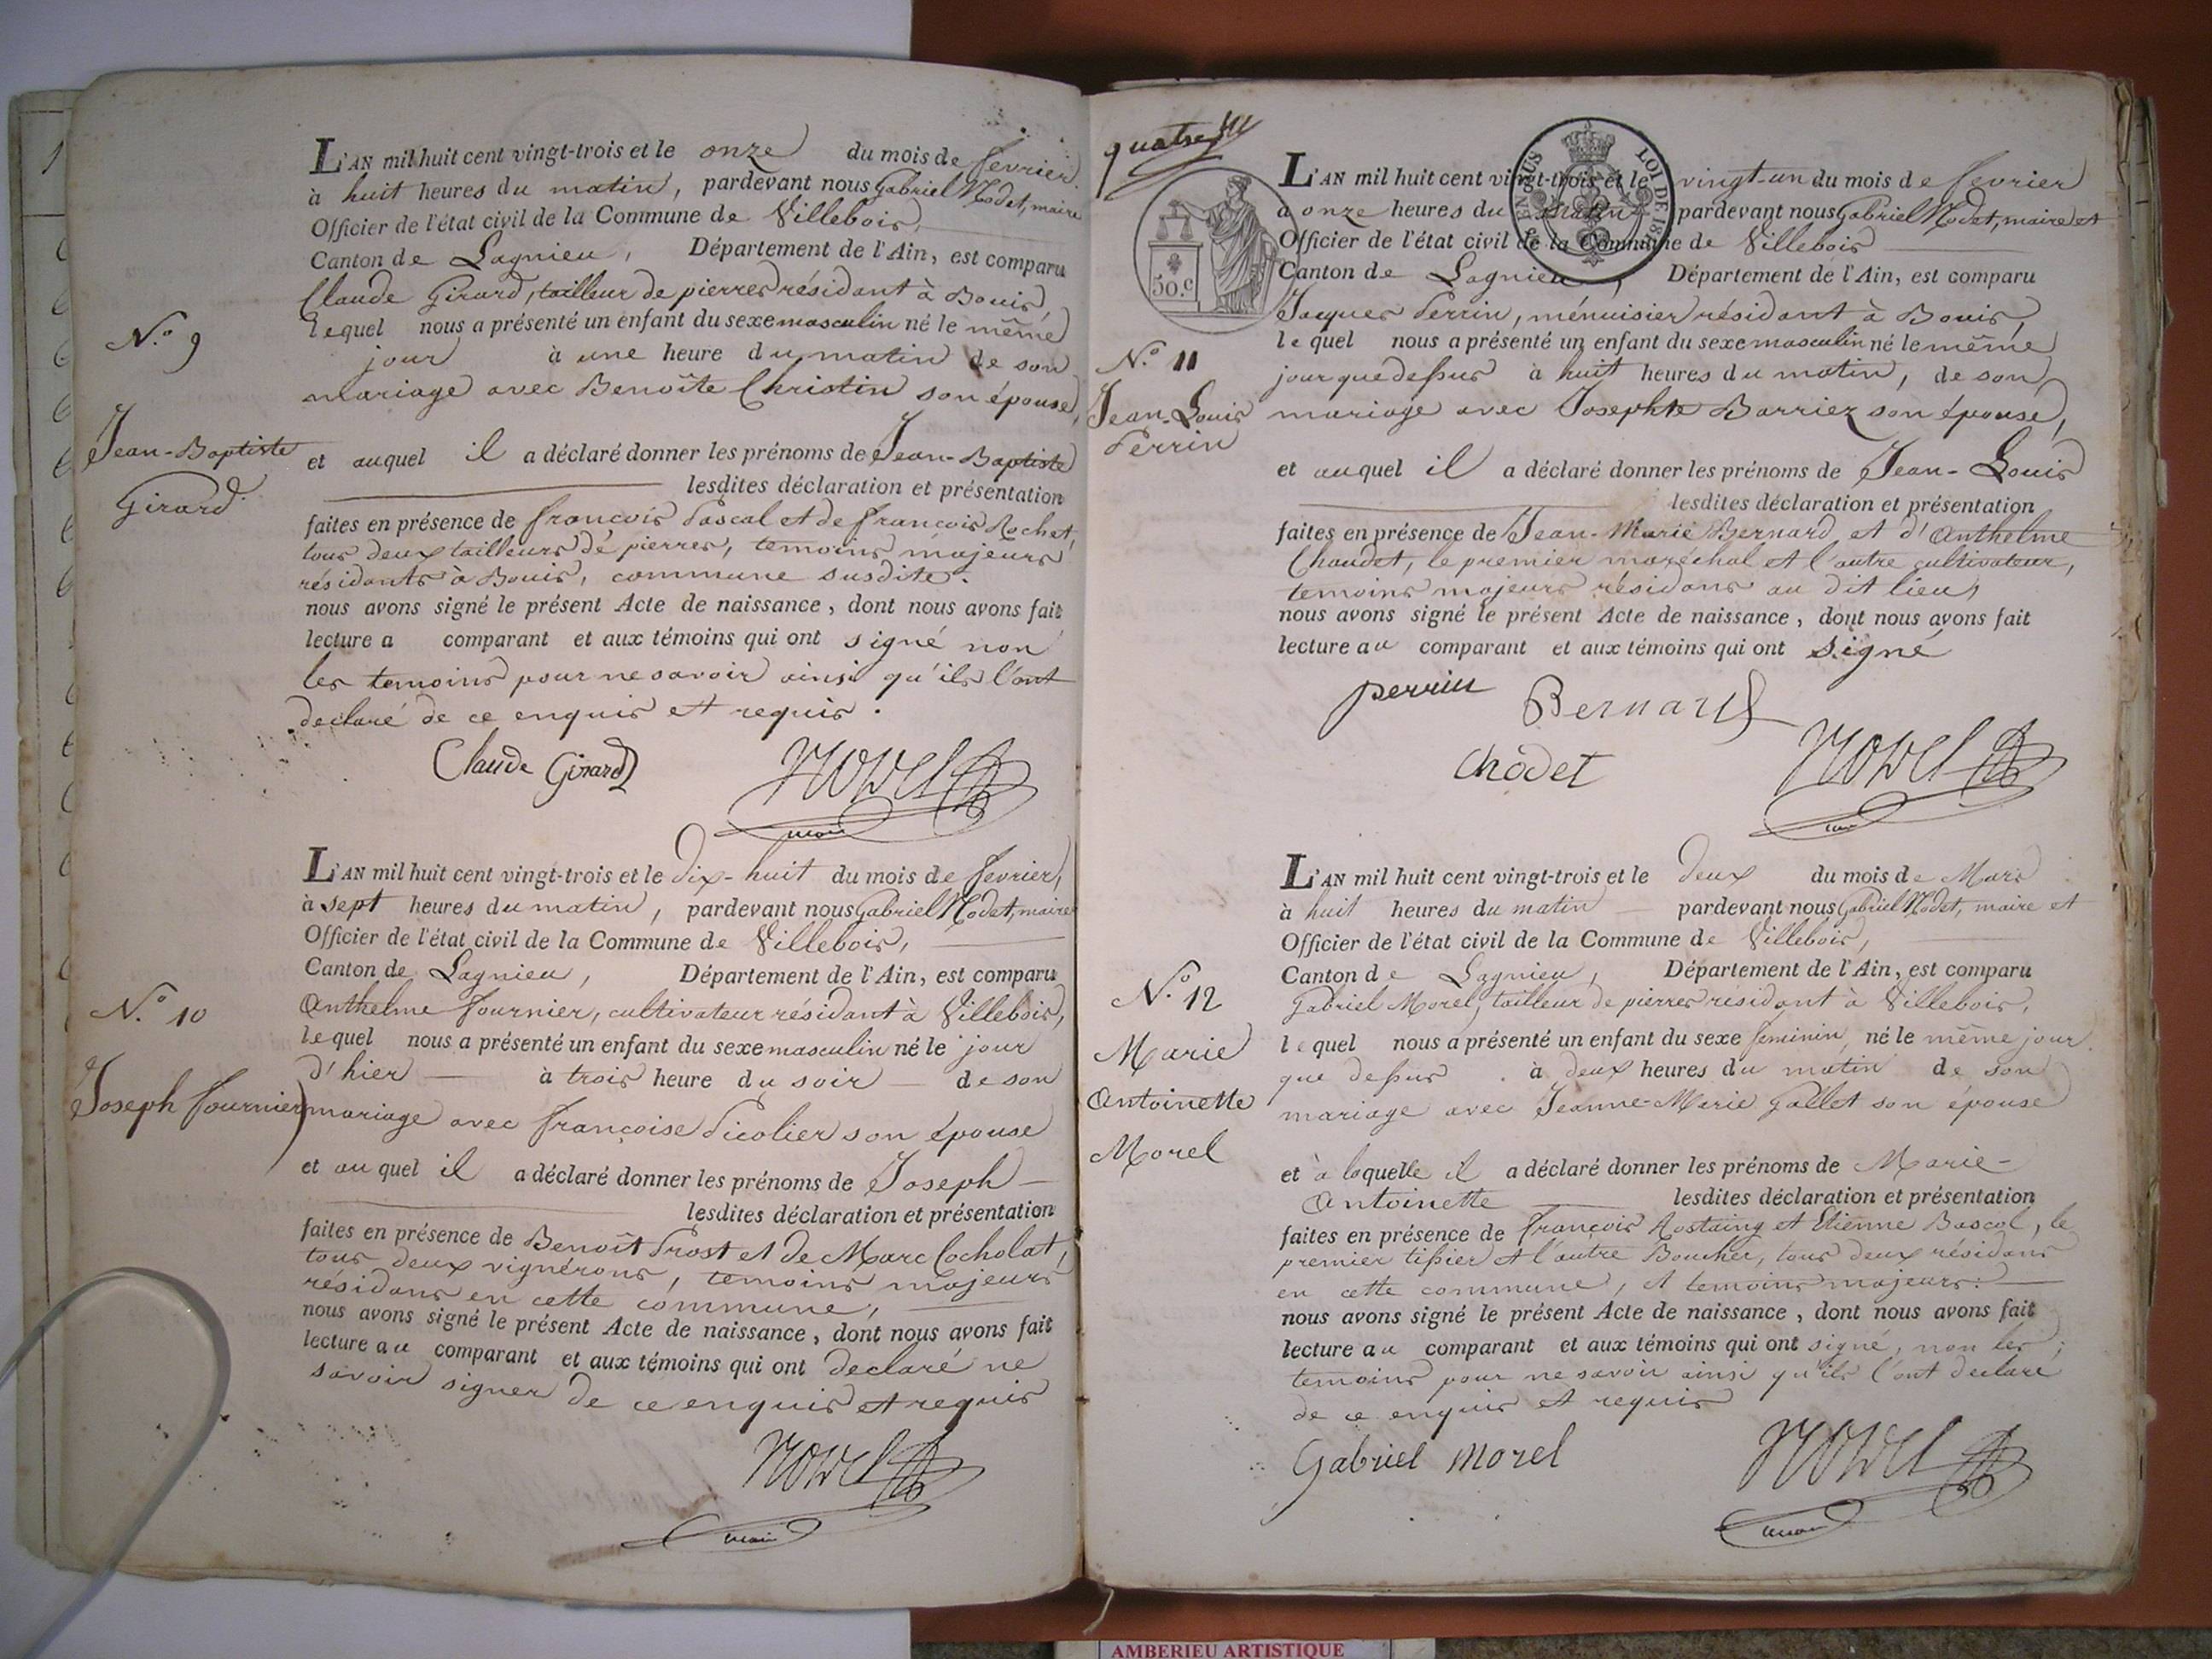 L'AN mil huit cent vingt-trois et le onze du mois de fevrier
à huit heures du matin, pardevant nous Gabriel Nodet, maire
Officier de l'état civil de la Commune de Villebois,
Canton de Lagnieu, Département de l'Ain, est comparu
Claude Girard, tailleur de pierres résidant à Bouis,
lequel nous a présenté un enfant du sexe masculin né le même
jour à une heure du matin de son
mariage avec Benoîte Christin son épouse,
et auquel il a déclaré donner les prénoms de Jean-Baptiste
lesdites déclaration et présentation
faites en présence de françois Pascal et de françois Rochet,
tous deux tailleurs de pierres, temoins majeurs
résidants à Bouis, commune susdite.
nous avons signé le présent Acte de naissance, dont nous avons fait
lecture a comparant et aux témoins qui ont signé non
les temoins pour ne savoir ainsi qu'ils l'ont
declaré de ce enquis et requis.
Claude Girard
Nodet
maire
N.o 9
Jean-Baptiste
Girard.
L'AN mil huit cent vingt-trois et le dix-huit du mois de fevrier,
à sept heures du matin, pardevant nous Gabriel Nodet, maire
Officier de l'état civil de la Commune de Villebois,
Canton de Lagnieu, Département de l'Ain, est comparu
Anthelme fournier, cultivateur résidant à Villebois,
lequel nous a présenté un enfant du sexe masculin né le jour
d'hier à trois heure du soir de son
mariage avec françoise Picolier son épouse
et auquel il a déclaré donner les prénoms de Joseph
lesdites déclaration et présentation
faites en présence de Benoît Prost et de Marc Cocholat,
tous deux vignérons, temoins majeurs
résidans en cette commune,
nous avons signé le présent Acte de naissance, dont nous avons fait
lecture au comparant et aux témoins qui ont declaré ne
savoir signer de ce enquis et requis
Nodet
maire
N.o 10
Joseph fournier
quatre
50.c
LOI DE 181
L'AN mil huit cent vingt-trois et le vingt-un du mois de fevrier
à onze heures du matin pardevant nous Gabriel Nodet, maire et
Officier de l'état civil de la Commune de Villebois
Canton de Lagnieu, Département de l'Ain, est comparu
Jacques Perrin, ménuisier résidant à Bouis,
lequel nous a présenté un enfant du sexe masculin né le même
jour que dessus à huit heures du matin, de son
mariage avec Josephte Barriez son épouse,
et auquel il a déclaré donner les prénoms de Jean-Louis
lesdites déclaration et présentation
faites en présence de Jean-Marie Bernard et d'Anthelme
Chaudet, le premier maréchal et l'autre cultivateur,
temoins majeurs résidans au dit lieu,
nous avons signé le présent Acte de naissance, dont nous avons fait
lecture au comparant et aux témoins qui ont signé
perrin
Bernard
chodet
Nodet
N.o 11
Jean-Louis
Perrin
L'AN mil huit cent vingt-trois et le deux du mois de Mars
à huit heures du matin pardevant nous Gabriel Nodet, maire et
Officier de l'état civil de la Commune de Villebois,
Canton de Lagnieu, Département de l'Ain, est comparu
Gabriel Morel, tailleur de pierres résidant à Villebois,
lequel nous a présenté un enfant du sexe feminin né le même jour
que dessus à deux heures du matin de son
mariage avec Jeanne-Marie Gallet son épouse
et à laquelle il a déclaré donner les prénoms de Marie-
Antoinette lesdites déclaration et présentation
faites en présence de françois Rostaing et Etienne Bascol, le
premier tissier et l'autre Boucher, tous deux résidans
en cette commune, et temoins majeurs.
nous avons signé le présent Acte de naissance, dont nous avons fait
lecture au comparant et aux témoins qui ont signé, non les
temoins pour ne savoir ainsi qu'ils l'ont declaré
de ce enquis et requis
Gabriel Morel
Nodet
maire
N.o 12
Marie
Antoinette
Morel
AMBERIEU ARTISTIQUE